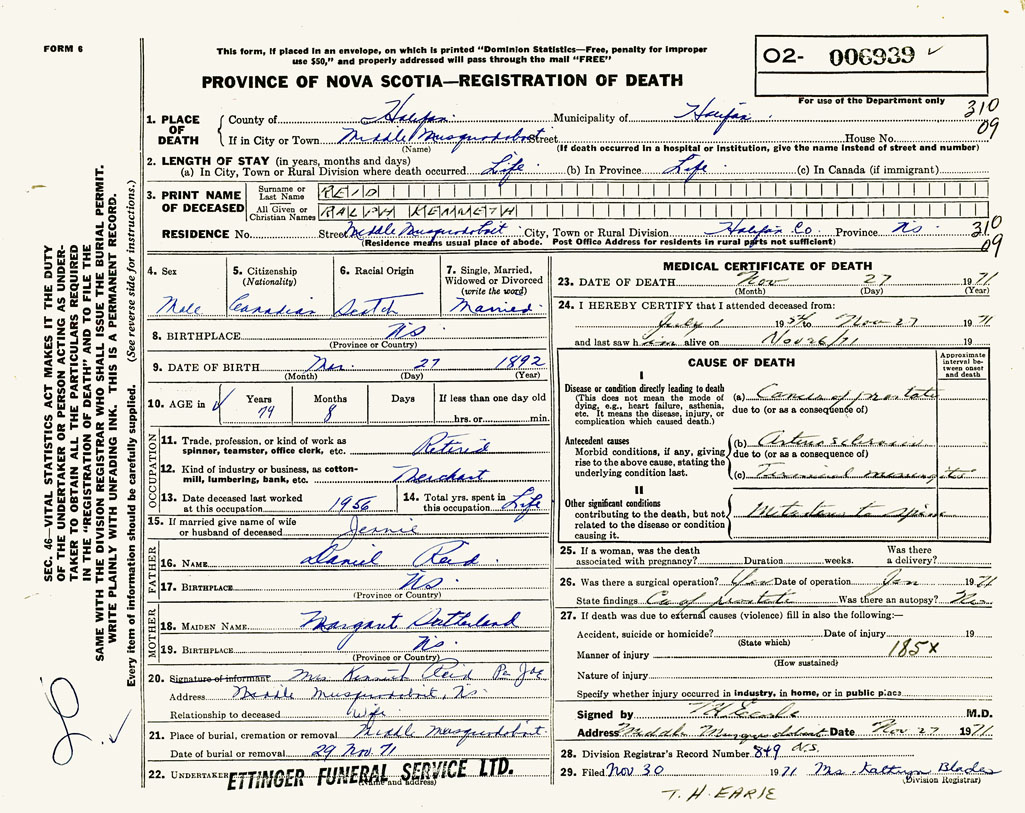 FORM 6
This form, if placed in an envelope, on which is printed "Dominion Statistics—Free, penalty for improper
use $50," and properly addressed will pass through the mail "FREE"
O2- 006939 ✓
PROVINCE OF NOVA SCOTIA—REGISTRATION OF DEATH
For use of the Department only
310
09
1. PLACE OF DEATH
County of Halifax Municipality of Halifax
If in City or Town Middle Musquodoboit Street House No.
(Name) (If death occurred in a hospital or institution, give the name instead of street and number)
2. LENGTH OF STAY (in years, months and days)
(a) In City, Town or Rural Division where death occurred Life (b) In Province Life (c) In Canada (if immigrant)
3. PRINT NAME OF DECEASED
Surname or Last Name REID
All Given or Christian Names RALPH KENNETH
RESIDENCE No. Street Middle Musquodoboit City, Town or Rural Division Halifax Co. Province NS
(Residence means usual place of abode. Post Office Address for residents in rural parts not sufficient)
310
09
4. Sex Male
5. Citizenship (Nationality) Canadian
6. Racial Origin Scotch
7. Single, Married, Widowed or Divorced (write the word) Married
8. BIRTHPLACE NS
(Province or Country)
9. DATE OF BIRTH Mar. 27 1892
(Month) (Day) (Year)
10. AGE in ✓ Years 79 Months 8 Days If less than one day old
hrs. or min.
OCCUPATION
11. Trade, profession, or kind of work as
spinner, teamster, office clerk, etc. Retired
12. Kind of industry or business, as cotton-
mill, lumbering, bank, etc. Merchant
13. Date deceased last worked
at this occupation 1956
14. Total yrs. spent in
this occupation Life
15. If married give name of wife
or husband of deceased Jennie
FATHER
16. NAME Daniel Reid
17. BIRTHPLACE NS.
(Province or Country)
MOTHER
18. MAIDEN NAME Margaret Sutherland
19. BIRTHPLACE NS
(Province or Country)
20. Signature of informant Mrs Kenneth Reid Per
Address Middle Musquodoboit, NS.
Relationship to deceased Wife
21. Place of burial, cremation or removal Middle Musquodoboit
Date of burial or removal 29 Nov 71
22. UNDERTAKER ETTINGER FUNERAL SERVICE LTD.
(Name and address)
MEDICAL CERTIFICATE OF DEATH
23. DATE OF DEATH Nov 27 1971
(Month) (Day) (Year)
24. I HEREBY CERTIFY that I attended deceased from:
July 1 1954 to Nov 27 1971
and last saw him alive on Nov 26/71 19
CAUSE OF DEATH
Approximate interval between onset and death
I
Disease or condition directly leading to death
(This does not mean the mode of
dying, e.g., heart failure, asthenia,
etc. It means the disease, injury, or
complication which caused death.)
(a) Cancer of prostate
due to (or as a consequence of)
Antecedent causes
Morbid conditions, if any, giving
rise to the above cause, stating the
underlying condition last.
(b) Arteriosclerosis
due to (or as a consequence of)
(c) Terminal meningitis
II
Other significant conditions
contributing to the death, but not
related to the disease or condition
causing it.
Metastases to spine
25. If a woman, was the death
associated with pregnancy? Duration weeks. Was there
a delivery?
26. Was there a surgical operation? Yes Date of operation Jan 1971
State findings Ca of prostate Was there an autopsy? No
27. If death was due to external causes (violence) fill in also the following:—
Accident, suicide or homicide? Date of injury 19
(State which)
Manner of injury 185X
(How sustained)
Nature of injury
Specify whether injury occurred in industry, in home, or in public place
Signed by T H Earle M.D.
Address Middle Musquodoboit N.S. Date Nov 27 1971
28. Division Registrar's Record Number 849
29. Filed Nov 30 1971 Mrs Kathryn Blades
(Division Registrar)
T. H. EARLE
SEC. 46—VITAL STATISTICS ACT MAKES IT THE DUTY
OF THE UNDERTAKER OR PERSON ACTING AS UNDER-
TAKER TO OBTAIN ALL THE PARTICULARS REQUIRED
IN THE "REGISTRATION OF DEATH" AND TO FILE THE
SAME WITH THE DIVISION REGISTRAR WHO SHALL ISSUE THE BURIAL PERMIT.
WRITE PLAINLY WITH UNFADING INK. THIS IS A PERMANENT RECORD.
Every item of information should be carefully supplied. (See reverse side for instructions.)